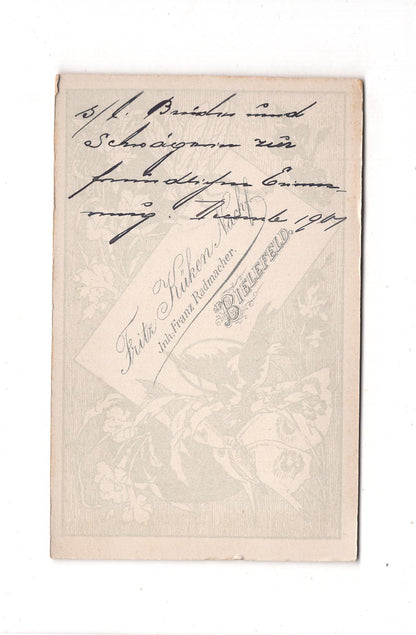 s/l. Bruder und
Schwägerin zur
freundlichen Erinne-
rung. Dezemb. 1901
Fritz Küken Nachf.
Inh. Franz Radmacher.
BIELEFELD.